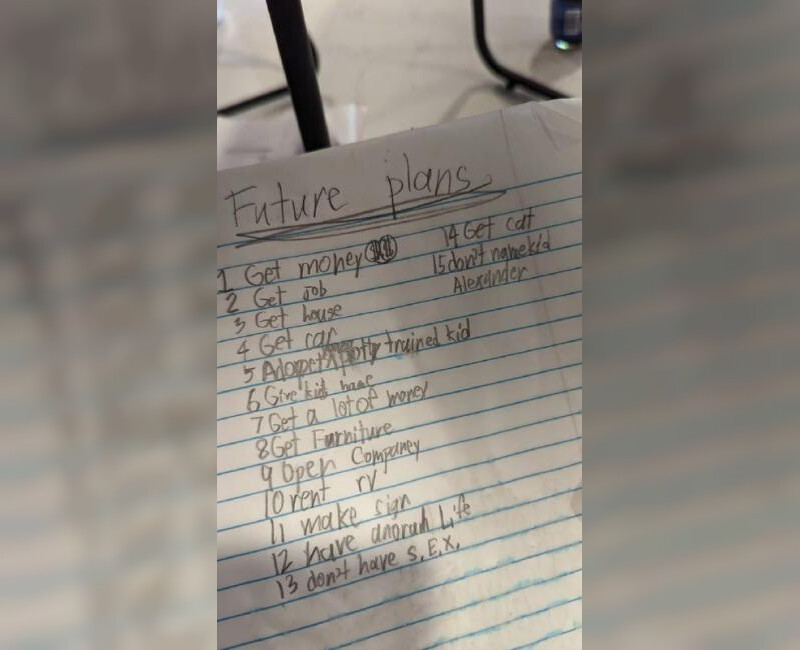 Future plans
1 Get money $$$
2 Get Job
3 Get house
4 Get car
5 Adopet potty trained kid
6 Give kid name
7 Get a lot of money
8 Get Furniture
9 Open Companey
10 rent rv
11 make sign
12 have life
13 don't have S.E.X.
14 Get cat
15 don't name kid
Alexander